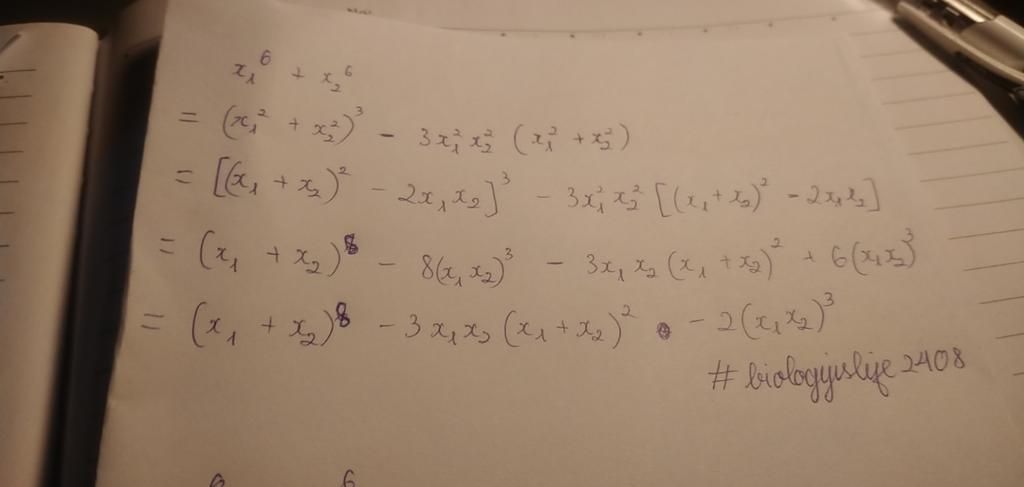 x₁⁶ + x₂⁶
= (x₁² + x₂²)³ - 3x₁²x₂² (x₁² + x₂²)
= [(x₁ + x₂)² - 2x₁x₂]³ - 3x₁²x₂² [(x₁ + x₂)² - 2x₁x₂]
= (x₁ + x₂)⁸ - 8(x₁x₂)³ - 3x₁x₂(x₁ + x₂)² + 6(x₁x₂)³
= (x₁ + x₂)⁸ - 3x₁x₂(x₁ + x₂)² - 2(x₁x₂)³
#biologyislife2408
6